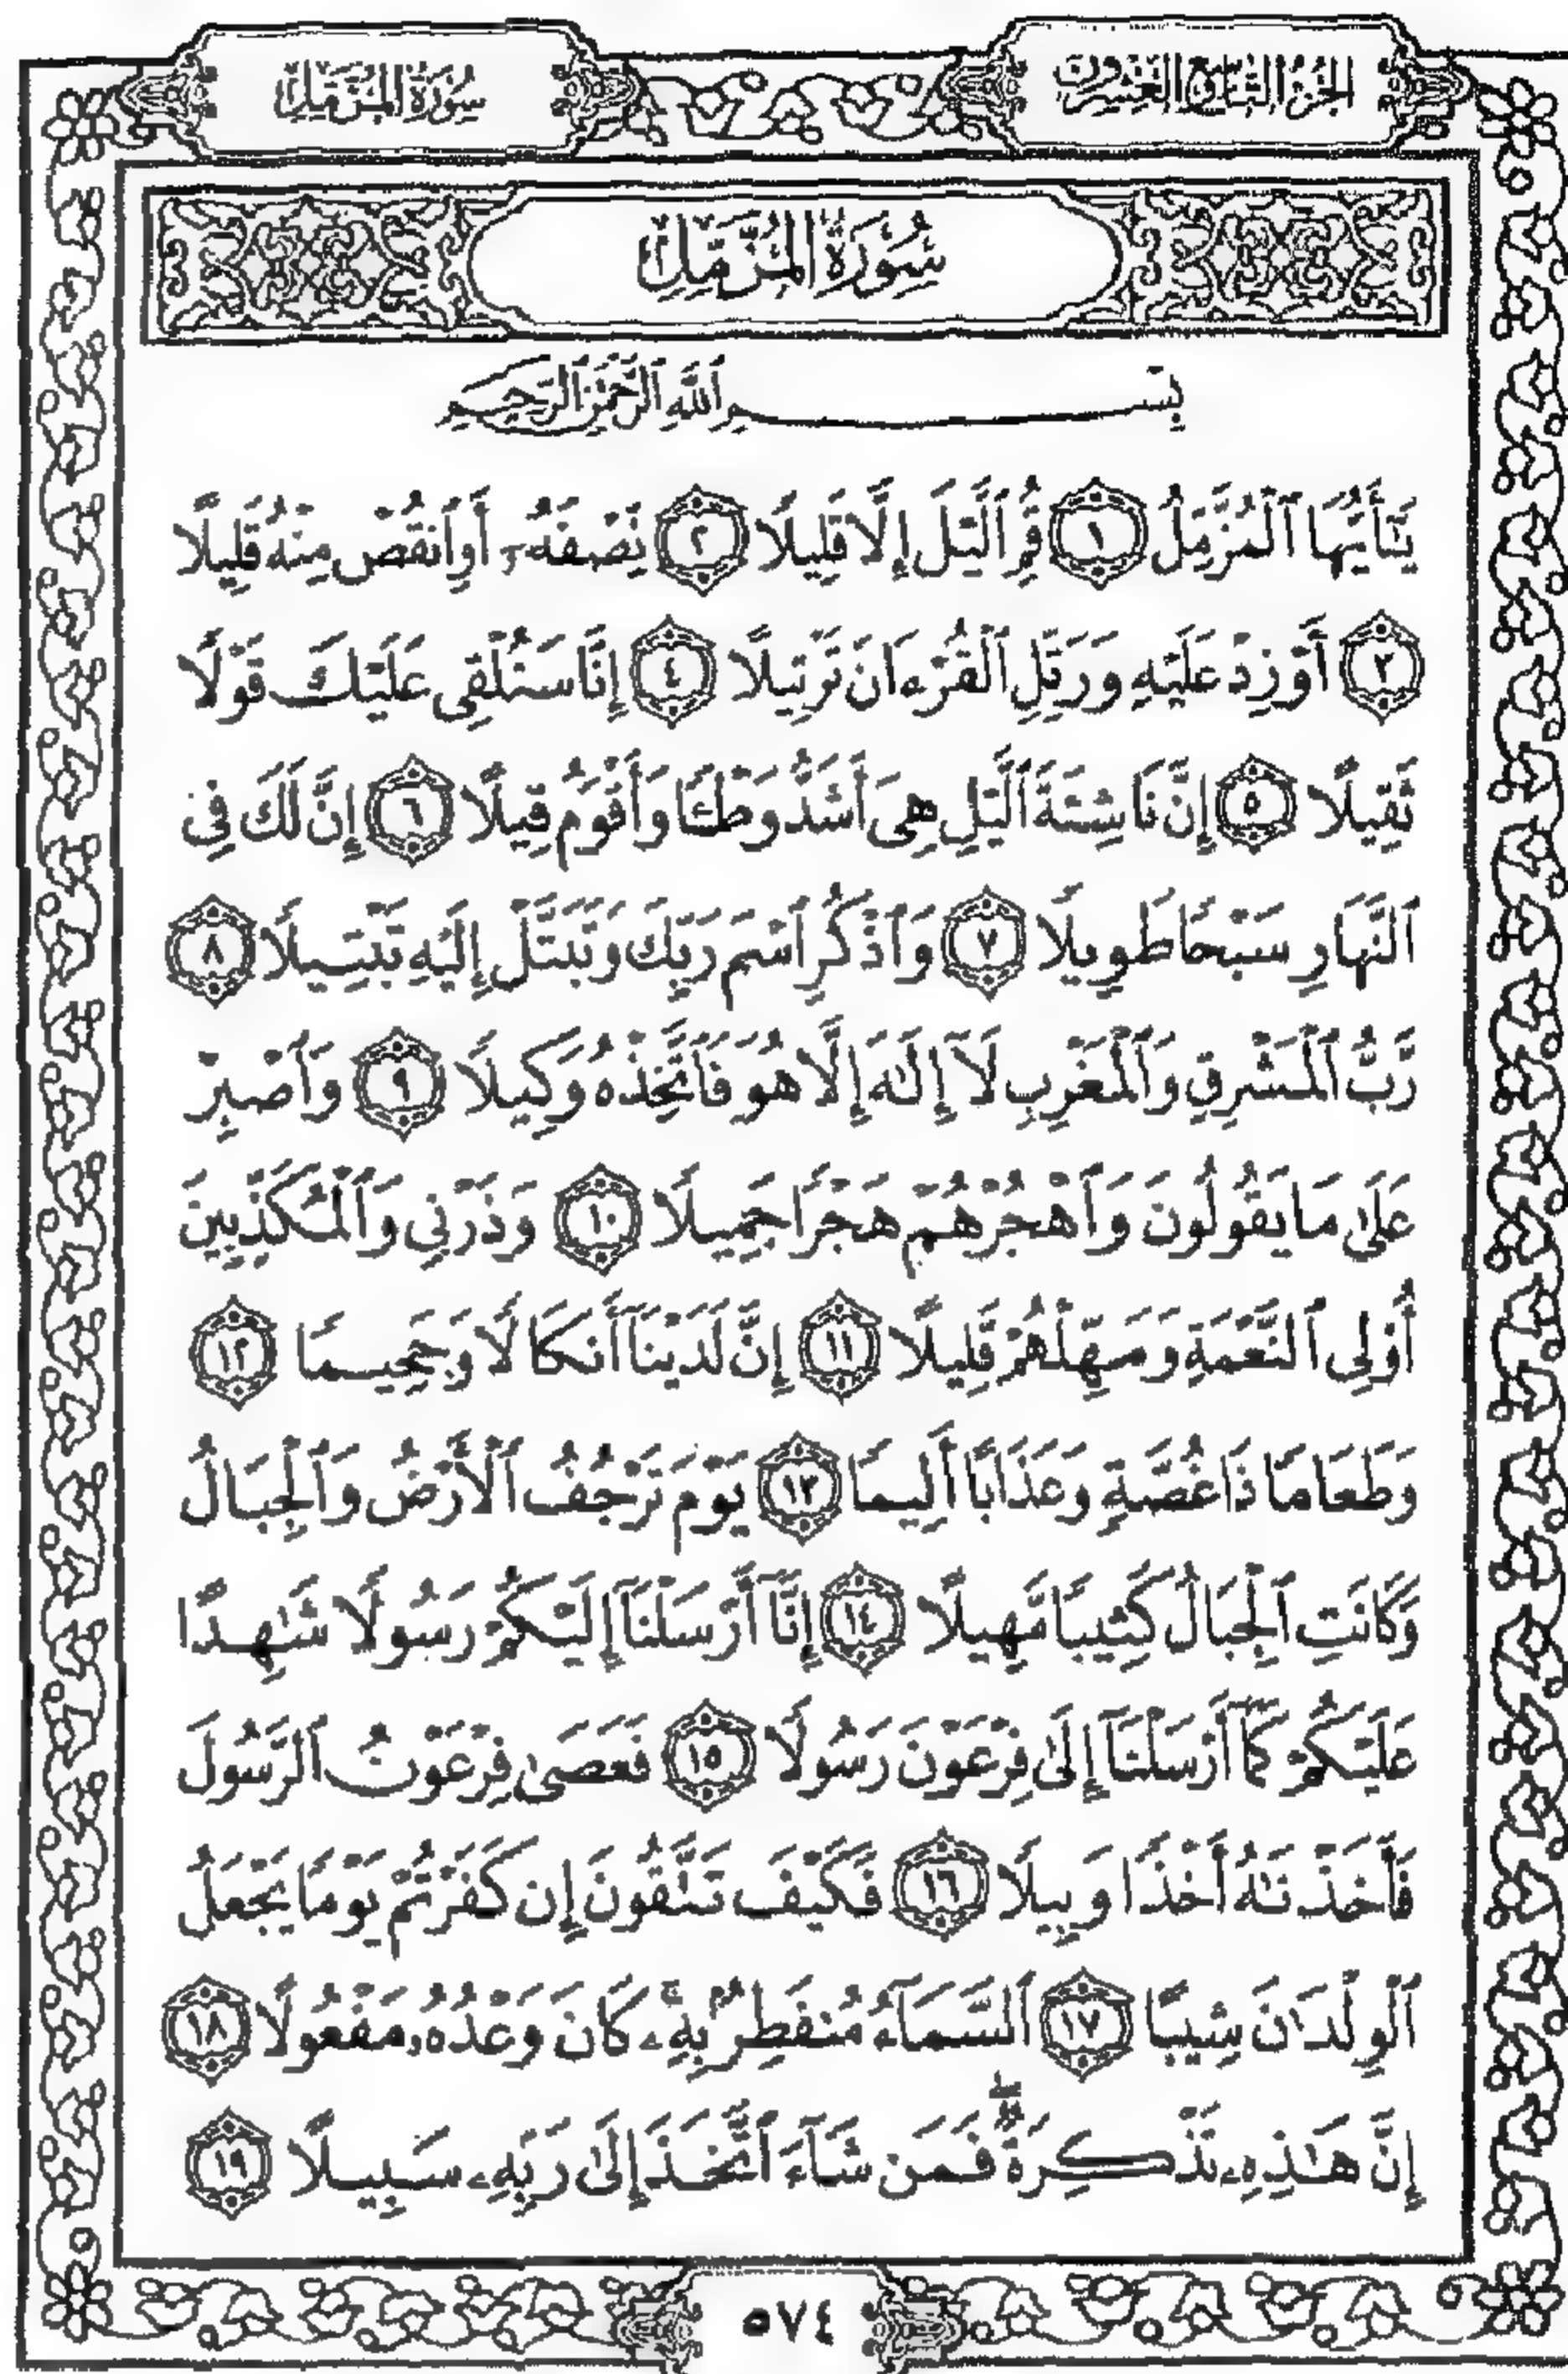 الجزء التاسع والعشرون
سورة المزمل
سُورَةُ المُزَّمِّلِ
بِسْمِ ٱللَّهِ ٱلرَّحْمَٰنِ ٱلرَّحِيمِ
يَٰٓأَيُّهَا ٱلْمُزَّمِّلُ ١ قُمِ ٱلَّيْلَ إِلَّا قَلِيلًا ٢ نِّصْفَهُۥٓ أَوِ ٱنقُصْ مِنْهُ قَلِيلًا
٣ أَوْ زِدْ عَلَيْهِ وَرَتِّلِ ٱلْقُرْءَانَ تَرْتِيلًا ٤ إِنَّا سَنُلْقِى عَلَيْكَ قَوْلًا
ثَقِيلًا ٥ إِنَّ نَاشِئَةَ ٱلَّيْلِ هِىَ أَشَدُّ وَطْـًٔا وَأَقْوَمُ قِيلًا ٦ إِنَّ لَكَ فِى
ٱلنَّهَارِ سَبْحًا طَوِيلًا ٧ وَٱذْكُرِ ٱسْمَ رَبِّكَ وَتَبَتَّلْ إِلَيْهِ تَبْتِيلًا ٨
رَّبُّ ٱلْمَشْرِقِ وَٱلْمَغْرِبِ لَآ إِلَٰهَ إِلَّا هُوَ فَٱتَّخِذْهُ وَكِيلًا ٩ وَٱصْبِرْ
عَلَىٰ مَا يَقُولُونَ وَٱهْجُرْهُمْ هَجْرًا جَمِيلًا ١٠ وَذَرْنِى وَٱلْمُكَذِّبِينَ
أُو۟لِى ٱلنَّعْمَةِ وَمَهِّلْهُمْ قَلِيلًا ١١ إِنَّ لَدَيْنَآ أَنكَالًا وَجَحِيمًا ١٢
وَطَعَامًا ذَا غُصَّةٍ وَعَذَابًا أَلِيمًا ١٣ يَوْمَ تَرْجُفُ ٱلْأَرْضُ وَٱلْجِبَالُ
وَكَانَتِ ٱلْجِبَالُ كَثِيبًا مَّهِيلًا ١٤ إِنَّآ أَرْسَلْنَآ إِلَيْكُمْ رَسُولًا شَٰهِدًا
عَلَيْكُمْ كَمَآ أَرْسَلْنَآ إِلَىٰ فِرْعَوْنَ رَسُولًا ١٥ فَعَصَىٰ فِرْعَوْنُ ٱلرَّسُولَ
فَأَخَذْنَٰهُ أَخْذًا وَبِيلًا ١٦ فَكَيْفَ تَتَّقُونَ إِن كَفَرْتُمْ يَوْمًا يَجْعَلُ
ٱلْوِلْدَٰنَ شِيبًا ١٧ ٱلسَّمَآءُ مُنفَطِرٌۢ بِهِۦۚ كَانَ وَعْدُهُۥ مَفْعُولًا ١٨
إِنَّ هَٰذِهِۦ تَذْكِرَةٌۖ فَمَن شَآءَ ٱتَّخَذَ إِلَىٰ رَبِّهِۦ سَبِيلًا ١٩
٥٧٤